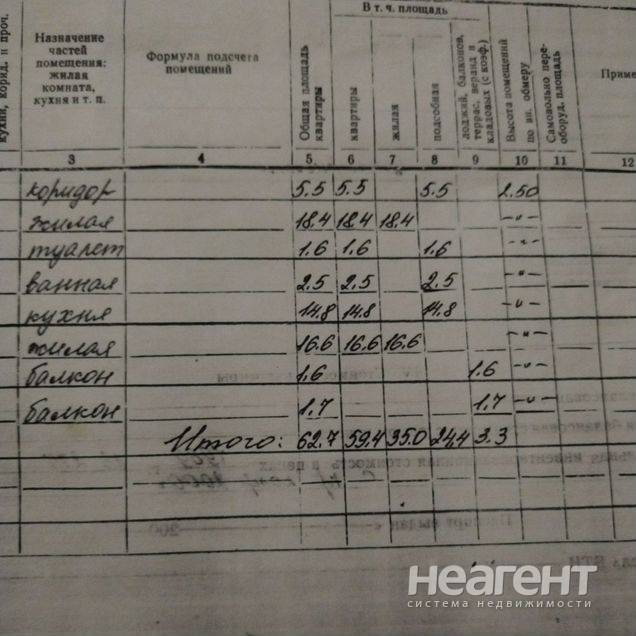 В т. ч. площадь
кухни, корид. и проч.
Назначение частей помещения: жилая комната, кухня и т. п.
Формула подсчета помещений
Общая площадь квартиры
квартиры
жилая
подсобная
лоджий, балконов, террас, веранд и кладовых (с коэф.)
Высота помещений по вн. обмеру
Самовольно пере- оборуд. площадь
Приме
3 4 5 6 7 8 9 10 11 12
коридор 5.5 5.5 5.5 2.50
жилая 18.4 18.4 18.4 -"-
туалет 1.6 1.6 1.6 -"-
ванная 2.5 2.5 2.5 -"-
кухня 14.8 14.8 14.8 -"-
жилая 16.6 16.6 16.6 -"-
балкон 1.6 1.6 -"-
балкон 1.7 1.7 -"-
Итого: 62.7 59.4 35.0 24.4 3.3
200
НЕАГЕНТ
система недвижимости